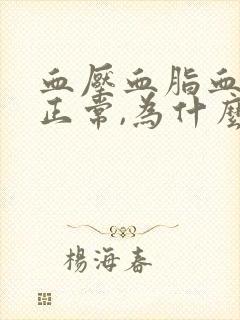 血壓血脂血
正常,為什麼
楊海春